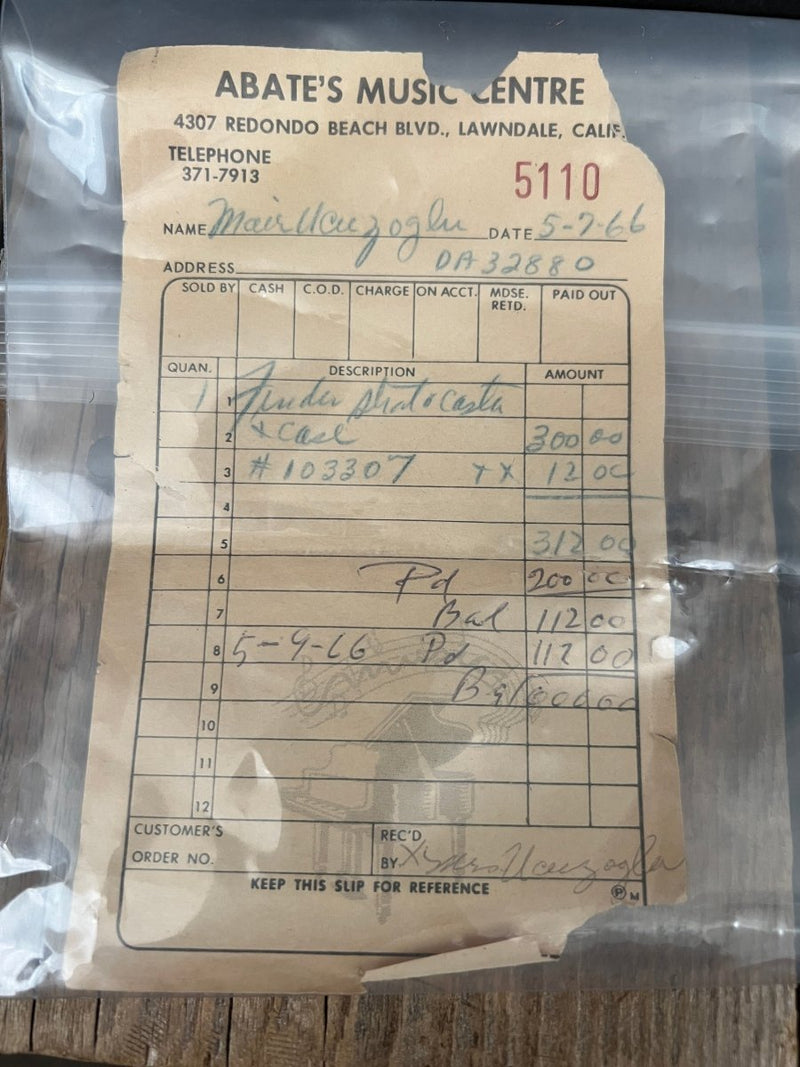 ABATE'S MUSIC CENTRE
4307 REDONDO BEACH BLVD., LAWNDALE, CALIF.
TELEPHONE
371-7913
5110
NAME Mair Ucuzoglu DATE 5-7-66
ADDRESS DA32880
SOLD BY CASH C.O.D. CHARGE ON ACCT. MDSE. RETD. PAID OUT
QUAN. DESCRIPTION AMOUNT
1 1 Fender Stratocaster
2 + Case 300 00
3 #103307 TX 12 00
4
5 312 00
6 Pd 200 00
7 Bal 112 00
8 5-9-66 Pd 112 00
9 Bal 000 00
10
11
12
CUSTOMER'S ORDER NO.
REC'D BY X Ucuzoglu
KEEP THIS SLIP FOR REFERENCE
P M